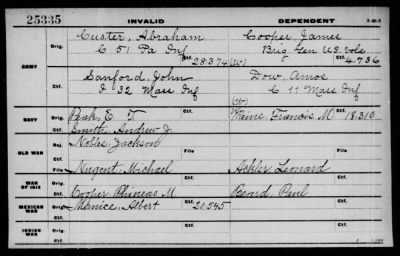 25335 INVALID DEPENDENT
Custer, Abraham Cooper James
Orig. C 51 Pa Inf Brig Gen U.S. Vols
ARMY Ctf. 28.374 (W) Ctf. 4.736
Sanford, John Dow Amos
Orig. I 32 Mass Inf C 11 Mass Inf
Ctf. (W)
NAVY Orig. Peak, E T Francis M 18.310
Ctf. Smith Andrew J.
OLD WAR Noble, Jackson
File File
Nugent, Michael Ackler Leonard
WAR OF 1812 Cooper Phineas M. Beard Paul
MEXICAN WAR Albert 20.545
Ctf. Ctf.
INDIAN WAR Orig.
Ctf. Ctf.